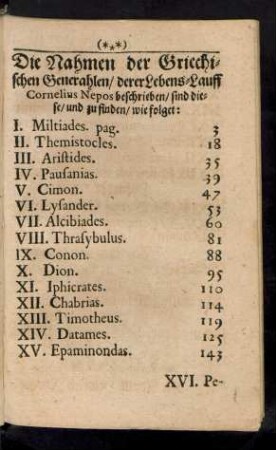 (***)
Die Nahmen der Griechi-
schen Generahlen/ derer Lebens-Lauff
Cornelius Nepos beschrieben/ sind die-
se/ und zu finden/ wie folget:
I. Miltiades. pag. 3
II. Themistocles. 18
III. Aristides. 35
IV. Pausanias. 39
V. Cimon. 47
VI. Lysander. 53
VII. Alcibiades. 60
VIII. Thrasybulus. 81
IX. Conon. 88
X. Dion. 95
XI. Iphicrates. 110
XII. Chabrias. 114
XIII. Timotheus. 119
XIV. Datames. 125
XV. Epaminondas. 143
XVI. Pe-